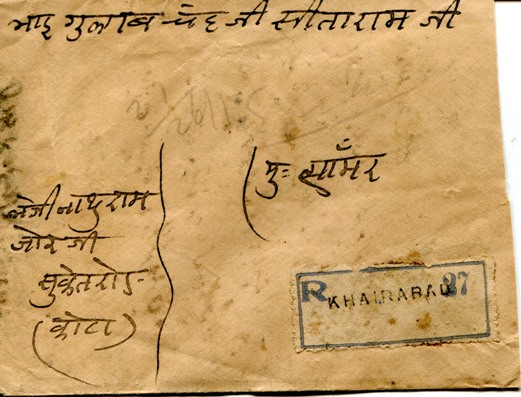 भाई गुलाब चंद जी सीताराम जी
पुः साँभर
नाथुराम
जोरजी
सुकेतरोड
(कोटा)
R KHAIRABAD 27